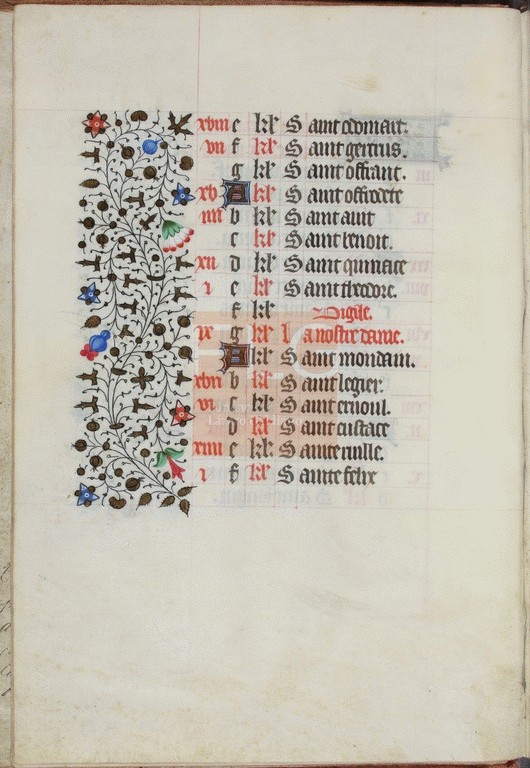 xviii e kl' Saint edomait.
vii f kl' Saint gertrus.
g kl' Saint offrant.
xv A kl' Saint offredete
iiii b kl' Saint aint
c kl' Saint benoit.
xii d kl' Saint quintice
i e kl' Saint theodore.
f kl' Vigile.
ix g kl' La nostre dame.
A kl' Saint mondain.
xvii b kl' Saint legier.
vi c kl' Saint ernoul.
d kl' Saint eustace
xiiii e kl' Sainte
i f kl' Sainte felix